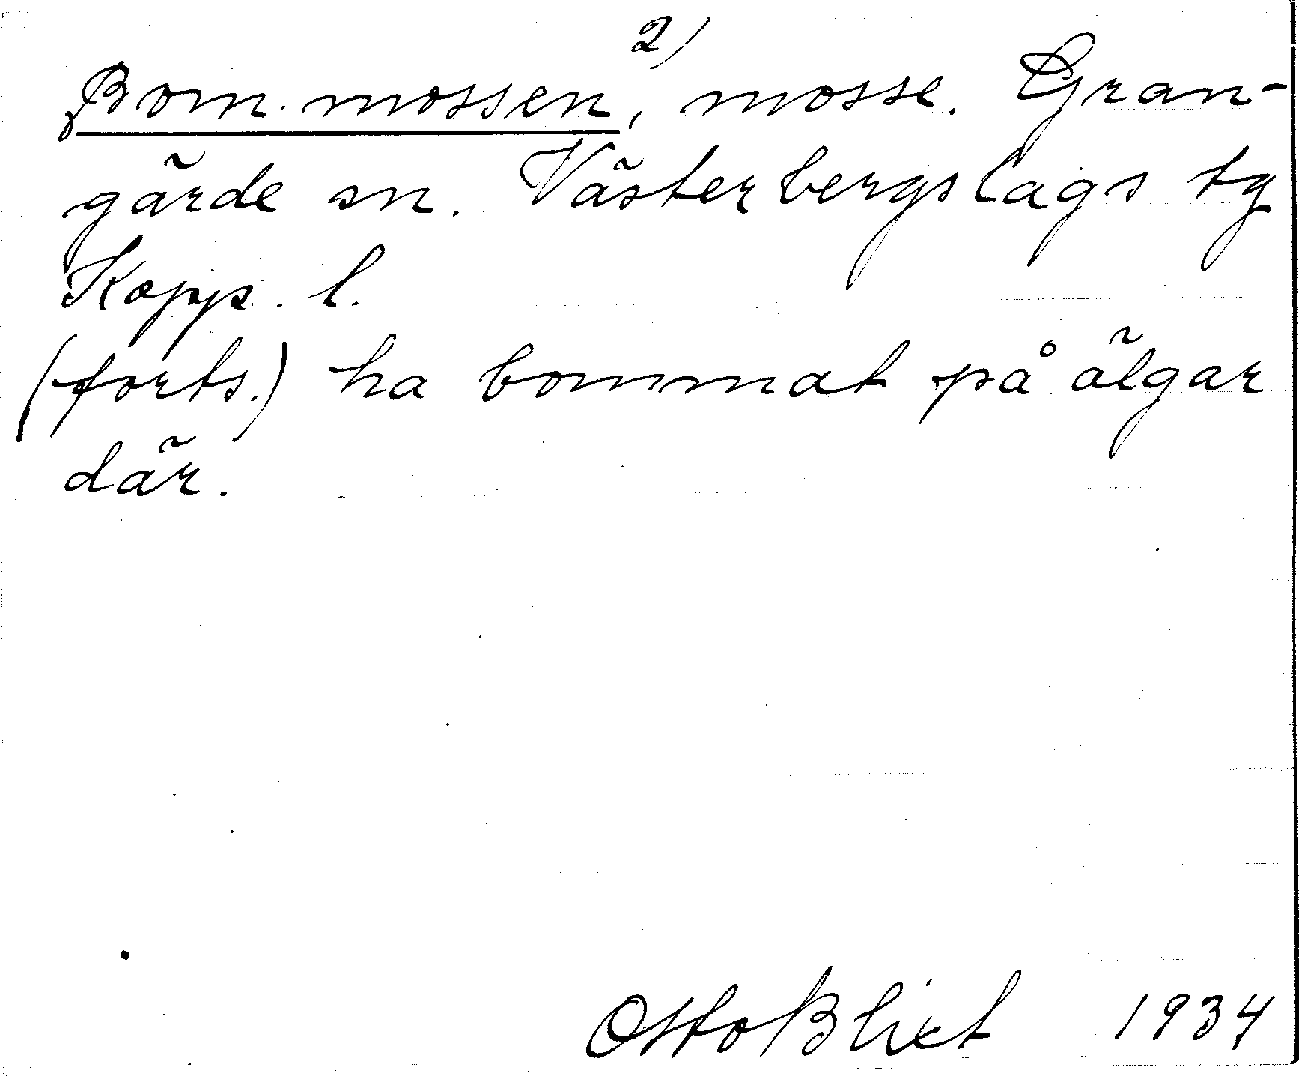 2)
Bom.mossen, mosse. Gran-
gärde sn. Västerbergslags tg
Kopps. l.
(forts.) ha bommat på älgar
där.
Otto Blixt 1934